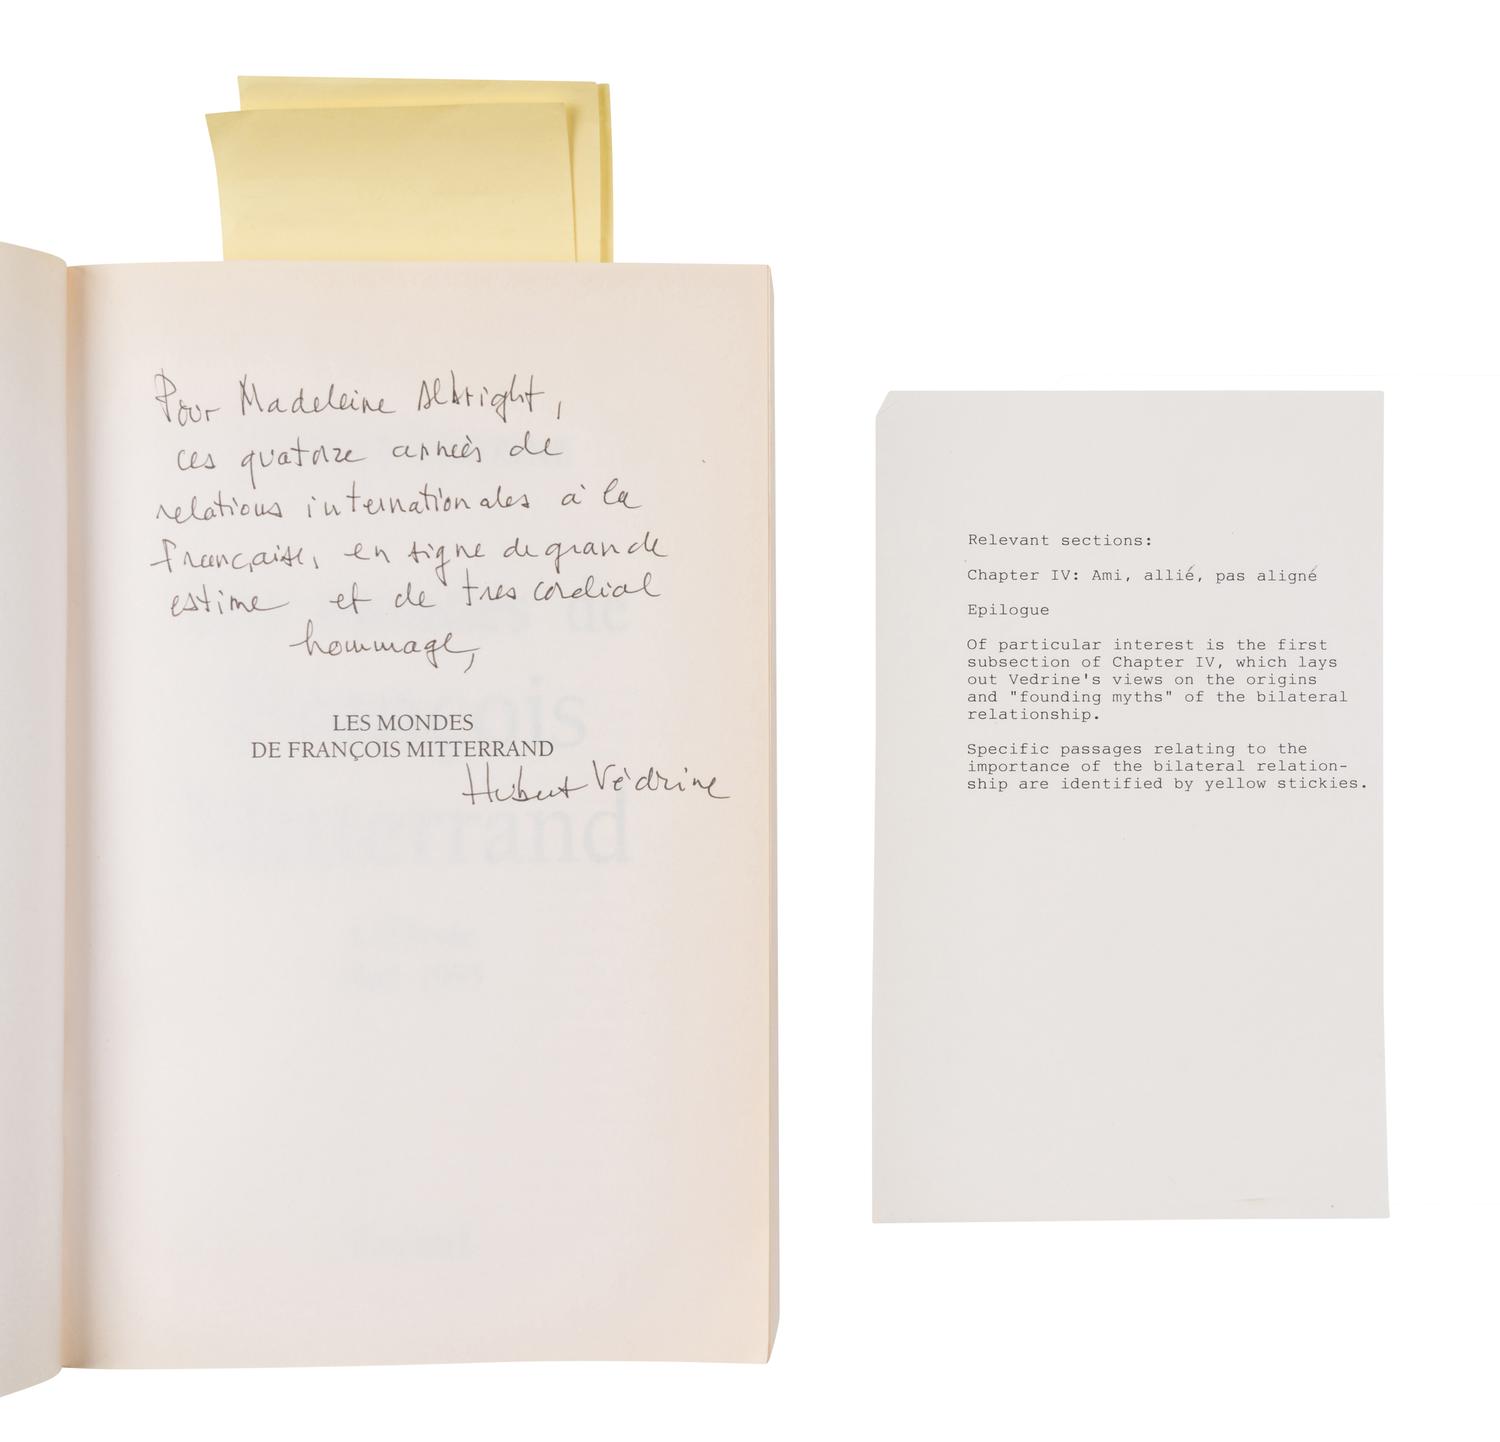 Pour Madeleine Albright,
ces quatorze années de
relations internationales à la
française, en signe de grande
estime et de tres cordial
hommage,
LES MONDES
DE FRANÇOIS MITTERRAND
Hubert Védrine
Relevant sections:
Chapter IV: Ami, allié, pas aligné
Epilogue
Of particular interest is the first
subsection of Chapter IV, which lays
out Vedrine's views on the origins
and "founding myths" of the bilateral
relationship.
Specific passages relating to the
importance of the bilateral relation-
ship are identified by yellow stickies.